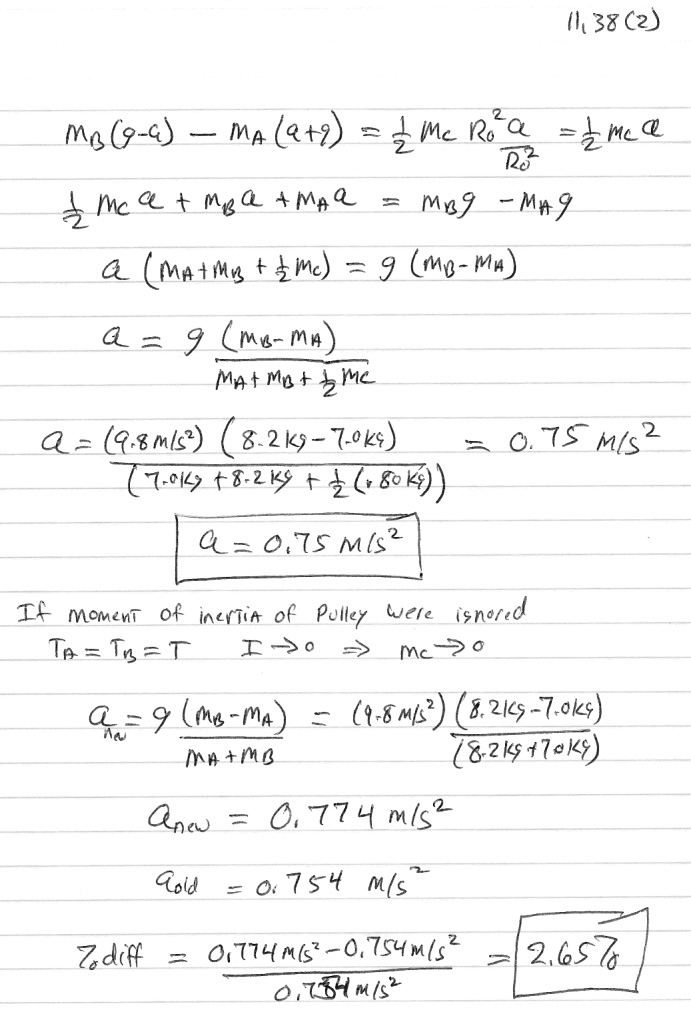 11,38(2)
m_B(g-a) - m_A(a+g) = 1/2 m_c R_0^2 a/R_0^2 = 1/2 m_c a
1/2 m_c a + m_B a + m_A a = m_B g - m_A g
a (m_A + m_B + 1/2 m_c) = g (m_B - m_A)
a = g (m_B - m_A) / (m_A + m_B + 1/2 m_c)
a = (9.8 m/s²) (8.2 kg - 7.0 kg) / (7.0 kg + 8.2 kg + 1/2 (.80 kg)) = 0.75 m/s²
a = 0.75 m/s²
If moment of inertia of Pulley were ignored
T_A = T_B = T I → 0 ⇒ m_c → 0
a = g (m_B - m_A) / (m_A + m_B) = (9.8 m/s²) (8.2 kg - 7.0 kg) / (8.2 kg + 7.0 kg)
a_new = 0.774 m/s²
a_old = 0.754 m/s²
% diff = (0.774 m/s² - 0.754 m/s²) / 0.754 m/s² = 2.65%